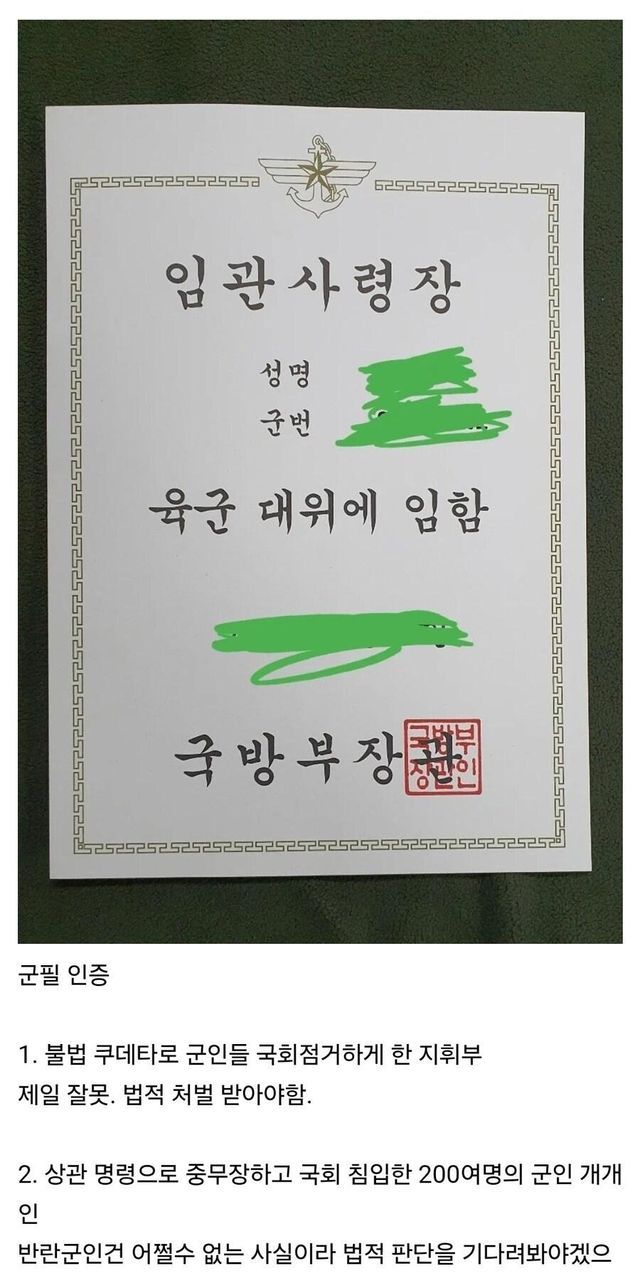 임관사령장
성명
군번
육군 대위에 임함
국방부장관
국방부
장관인
군필 인증
1. 불법 쿠데타로 군인들 국회점거하게 한 지휘부
제일 잘못. 법적 처벌 받아야함.
2. 상관 명령으로 중무장하고 국회 침입한 200여명의 군인 개개
인
반란군인건 어쩔수 없는 사실이라 법적 판단을 기다려봐야겠으